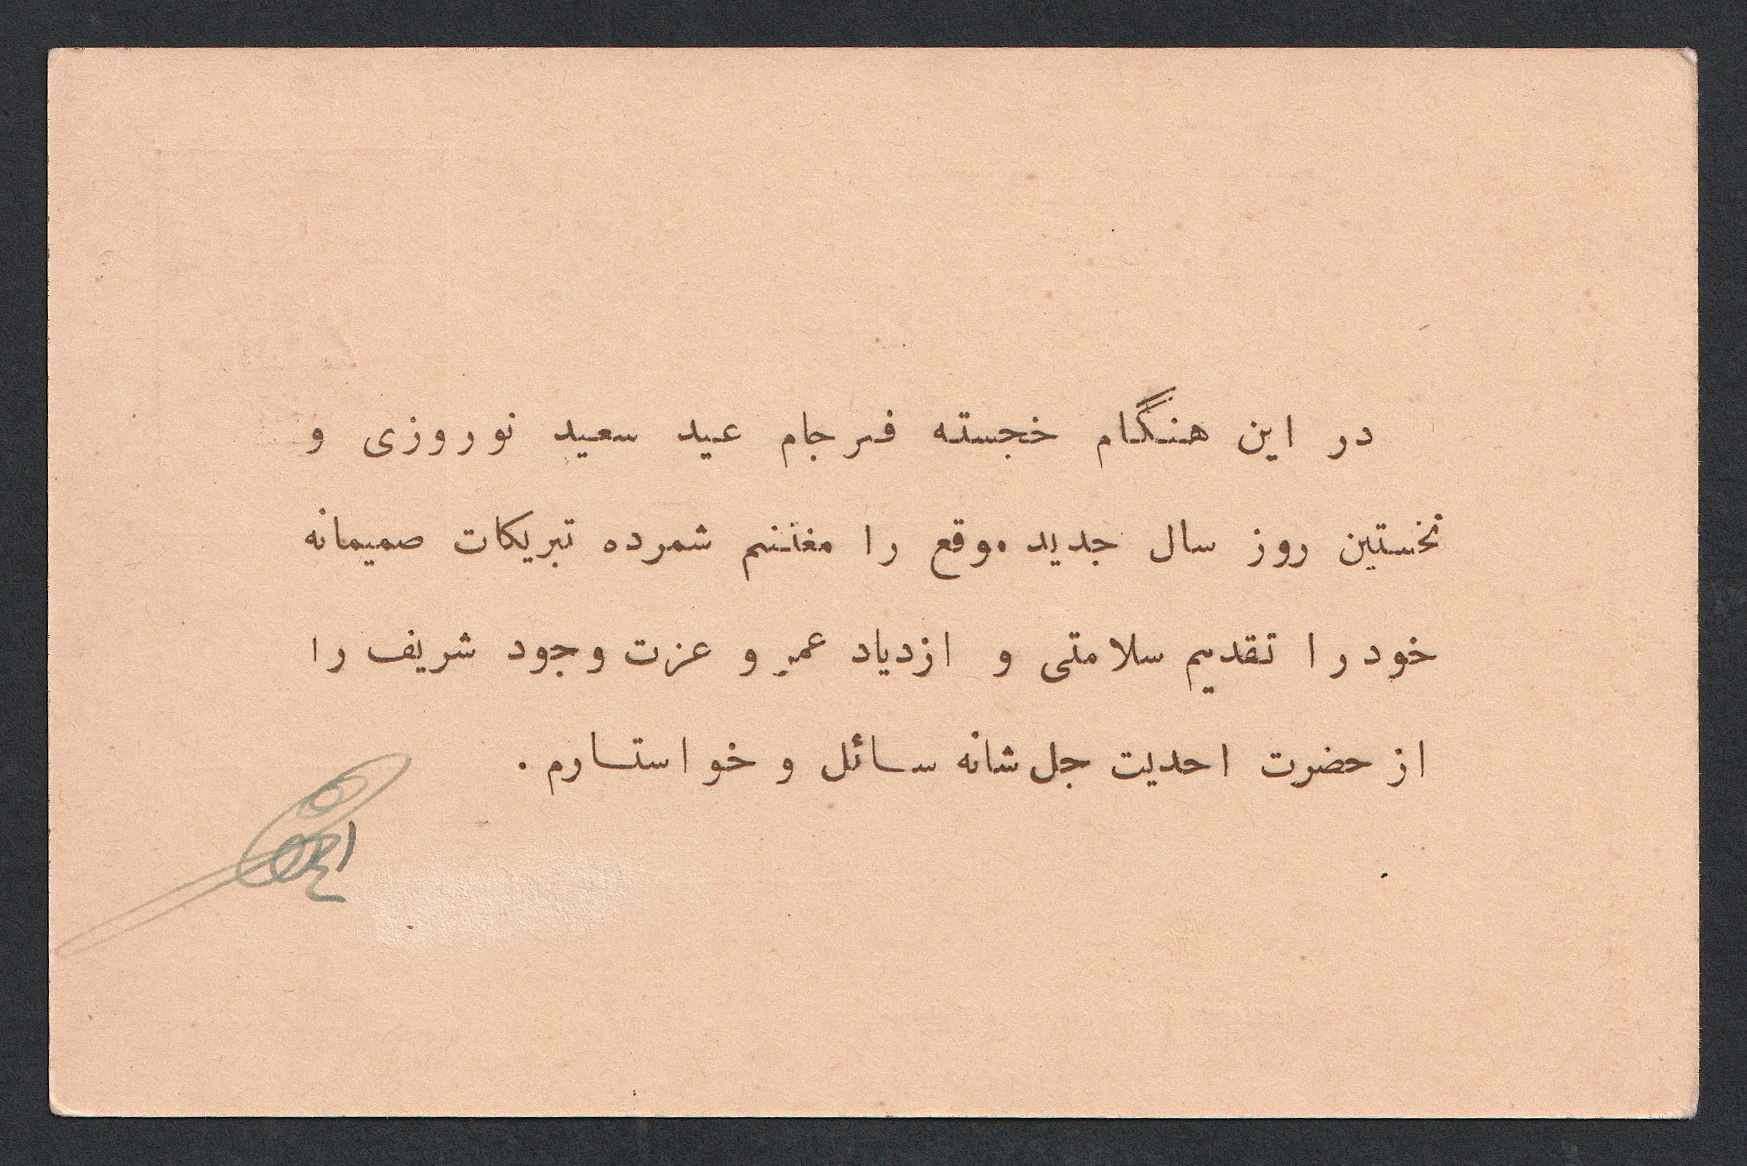 در این هنگام خجسته فرجام عید سعید نوروزی و
نخستین روز سال جدید موقع را مغتنم شمرده تبریکات صمیمانه
خود را تقدیم سلامتی و ازدیاد عمر و عزت وجود شریف را
از حضرت احدیت جل شانه سائل و خواستارم .